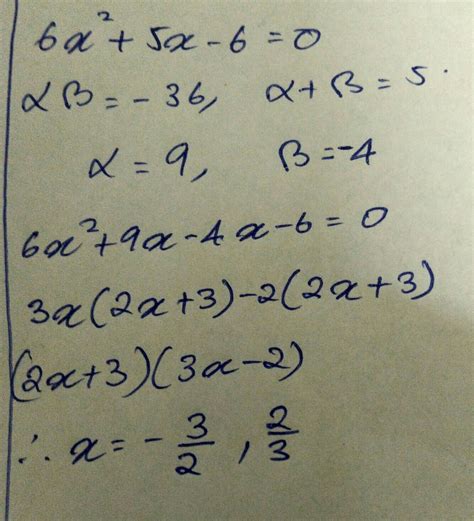 6x² + 5x - 6 = 0
αβ = - 36, α + β = 5.
α = 9, β = -4
6x² + 9x - 4x - 6 = 0
3x(2x+3) - 2(2x+3)
(2x+3)(3x-2)
∴ x = - 3/2 , 2/3